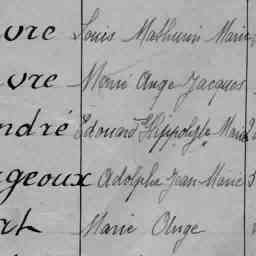 vre Louis Mathurin Marie
vre Marie Ange Jacques
ndré Edouard Hippolyte Marie
geoux Adolphe Jean Marie
rt Marie Ange